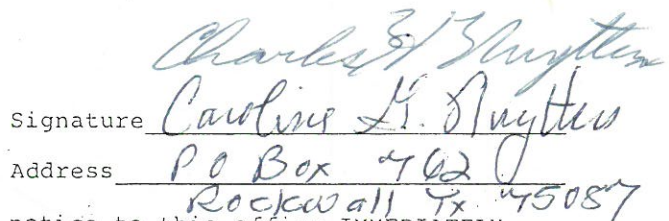 Charles H Nuytten
Signature Caroline G. Nuytten
Address PO Box 762
Rockwall Tx 75087
notice to this office IMMEDIATELY